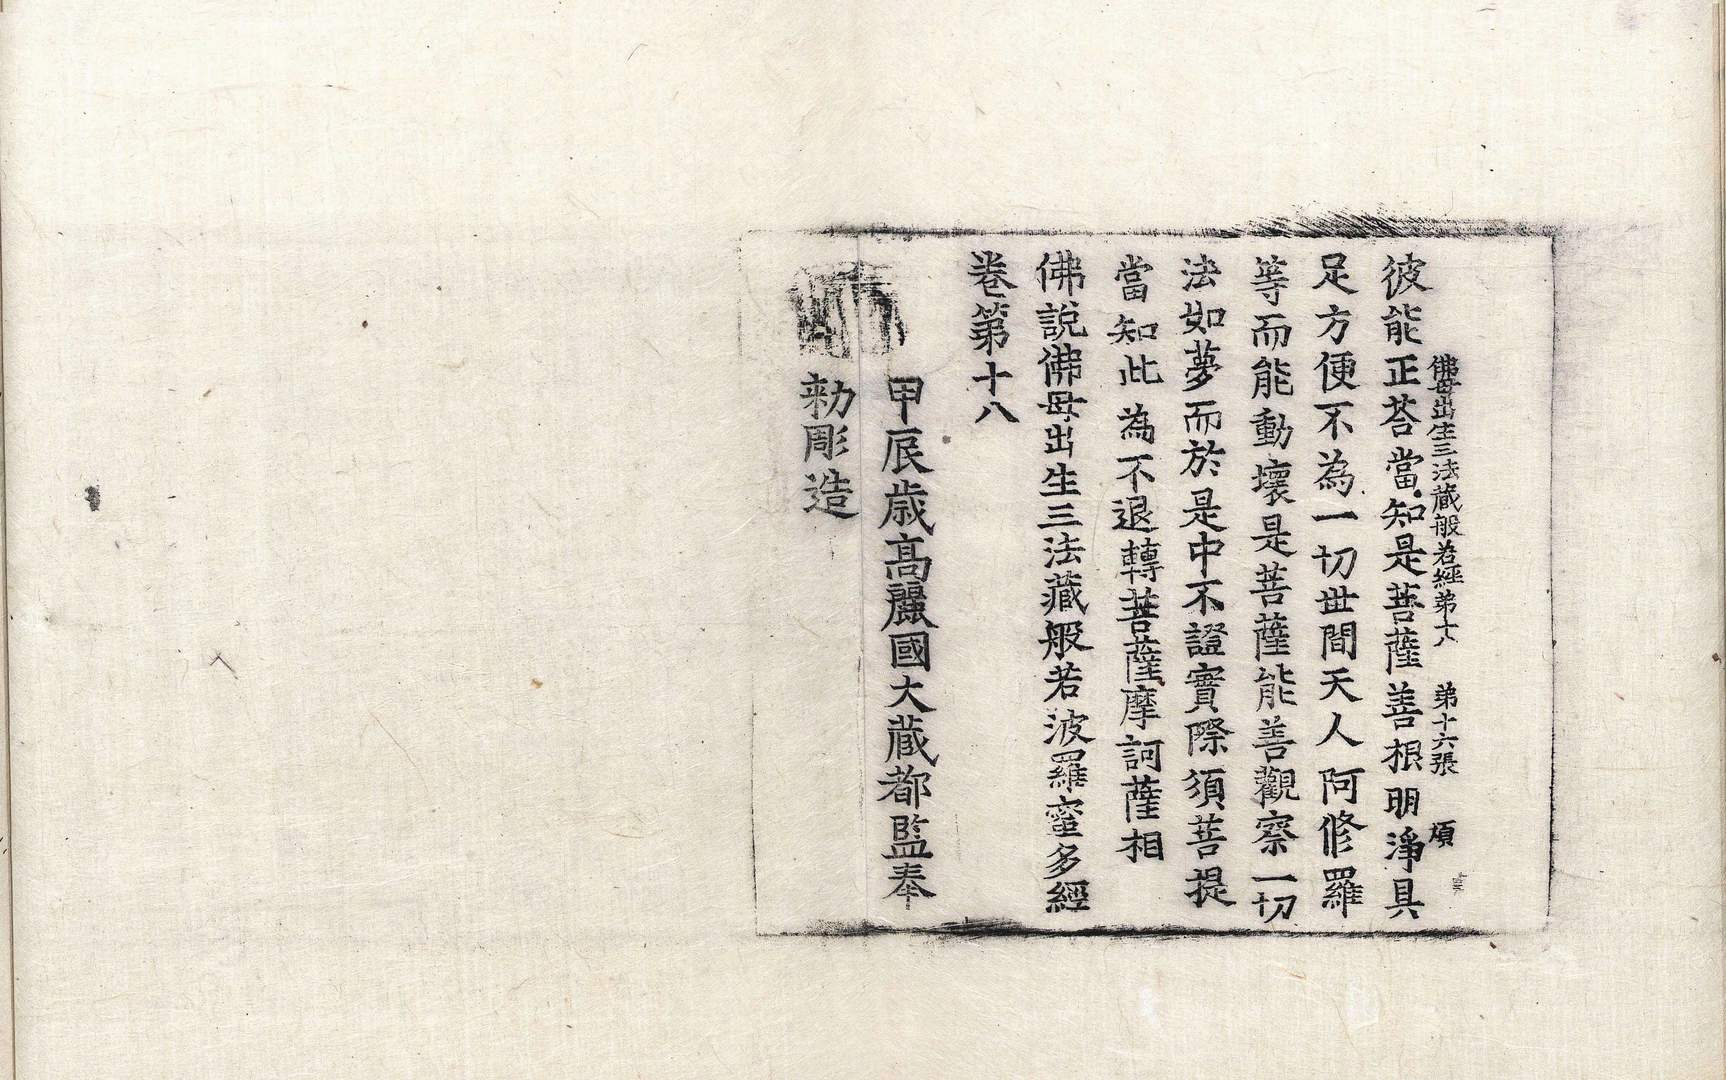 佛母出生三法藏般若經弟十八 弟十六張 頃
彼能正荅當知是菩薩善根明淨具
足方便不為一切世間天人阿修羅
等而能動壞是菩薩能善觀察一切
法如夢而於是中不證實際須菩提
當知此為不退轉菩薩摩訶薩相
佛說佛母出生三法藏般若波羅蜜多經
卷第十八
甲辰歲高麗國大藏都監奉
勑彫造